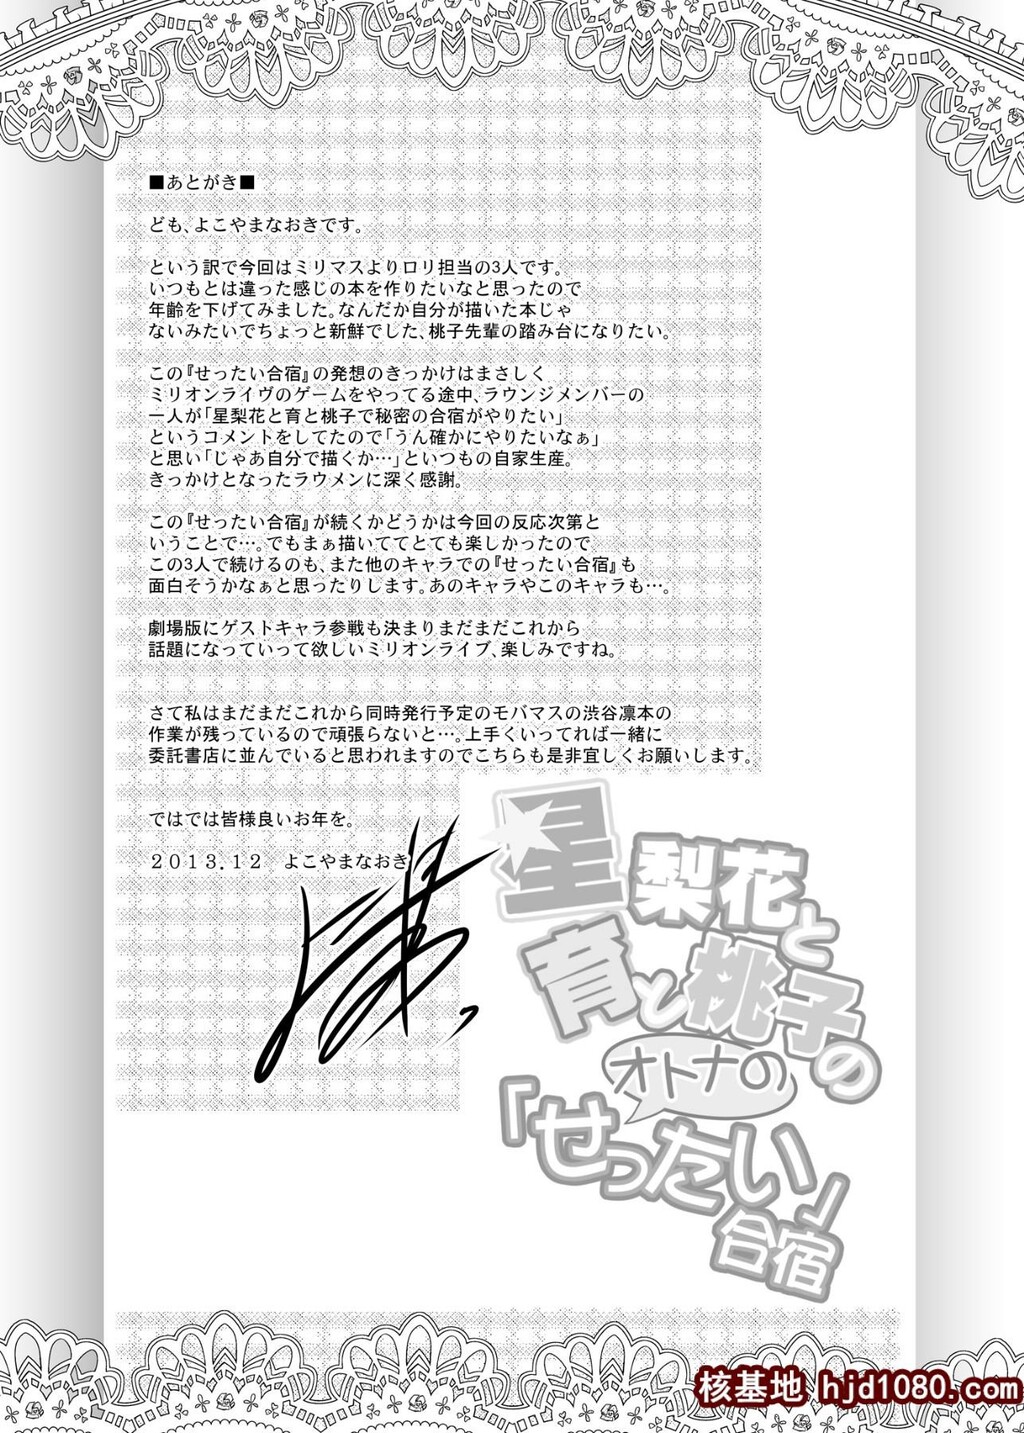 ■あとがき■
ども、よこやまなおきです。
という訳で今回はミリマスよりロリ担当の3人です。
いつもとは違った感じの本を作りたいなと思ったので
年齢を下げてみました。なんだか自分が描いた本じゃ
ないみたいでちょっと新鮮でした、桃子先輩の踏み台になりたい。
この『せったい合宿』の発想のきっかけはまさしく
ミリオンライヴのゲームをやってる途中、ラウンジメンバーの
一人が「星梨花と育と桃子で秘密の合宿がやりたい」
というコメントをしてたので「うん確かにやりたいなぁ」
と思い「じゃあ自分で描くか…」といつもの自家生産。
きっかけとなったラウメンに深く感謝。
この『せったい合宿』が続くかどうかは今回の反応次第と
いうことで…。でもまぁ描いててとても楽しかったので
この3人で続けるのも、また他のキャラでの『せったい合宿』も
面白そうかなぁと思ったりします。あのキャラやこのキャラも…。
劇場版にゲストキャラ参戦も決まりまだまだこれから
話題になっていって欲しいミリオンライブ、楽しみですね。
さて私はまだまだこれから同時発行予定のモバマスの渋谷凛本の
作業が残っているので頑張らないと…。上手くいってれば一緒に
委託書店に並んでいると思われますのでこちらも是非宜しくお願いします。
ではでは皆様良いお年を。
２０１３．１２　よこやまなおき
星梨花と
育と桃子の
オトナの
「せったい」
合宿
核基地 hjd1080.com